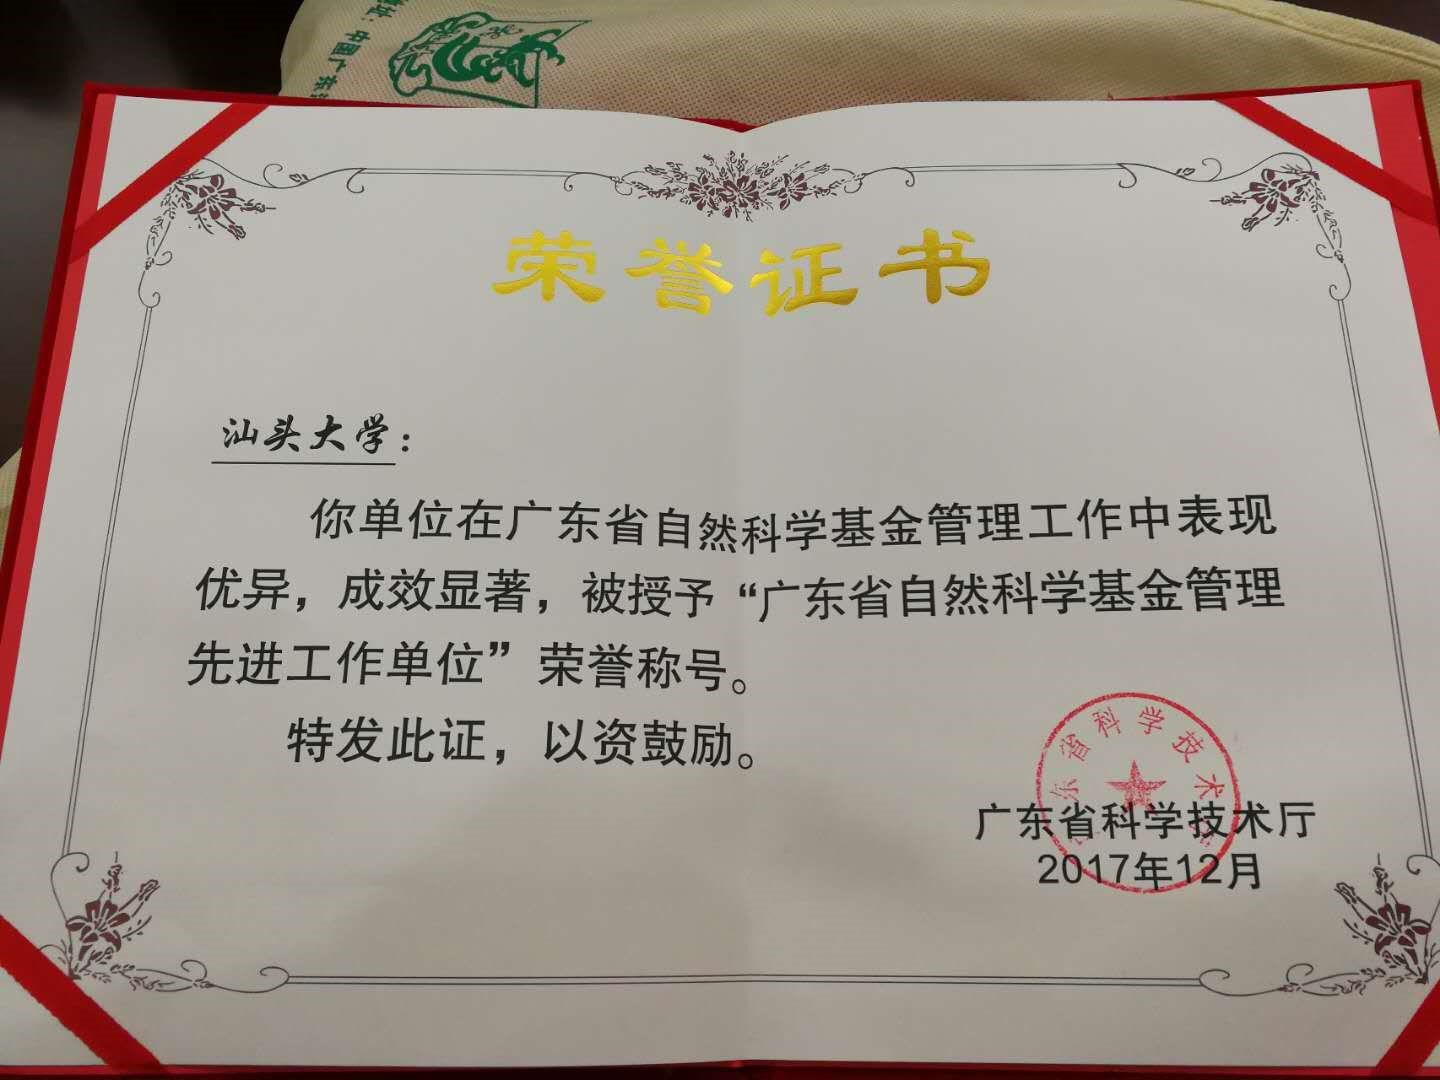 址：中國广东
荣誉证书
汕头大学：
你单位在广东省自然科学基金管理工作中表现
优异，成效显著，被授予“广东省自然科学基金管理
先进工作单位”荣誉称号。
特发此证，以资鼓励。
东省科学技术
广东省科学技术厅
2017年12月